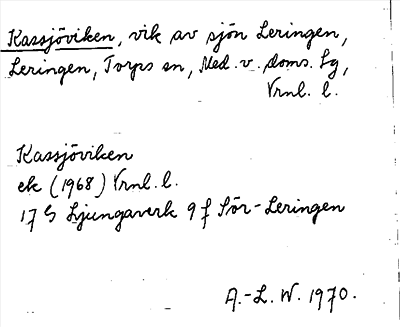 Kassjöviken, vik av sjön Leringen,
Leringen, Torps sn, Med. v. doms. Lg,
Vrnl. l.
Kassjöviken
ek (1968) Vrnl. l.
17 G Ljungaverk 9 f Sör-Leringen
A.-L. W. 1970.